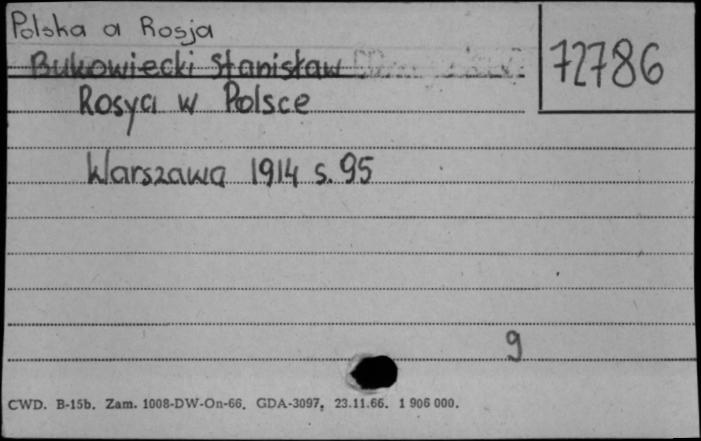 Polska a Rosja
72786
Bukowiecki Stanisław
Rosya w Polsce
Warszawa 1914 s. 95
9
CWD. B-15b. Zam. 1008-DW-On-66. GDA-3097, 23.11.66. 1 906 000.